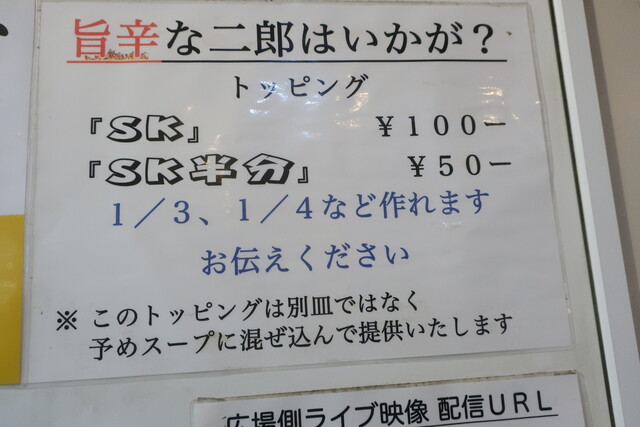 旨辛な二郎はいかが？
トッピング
『SK』 ￥１００ー
『SK半分』 ￥５０ー
１／３、１／４など作れます
お伝えください
※ このトッピングは別皿ではなく
予めスープに混ぜ込んで提供いたします
広場側ライブ映像 配信ＵＲＬ